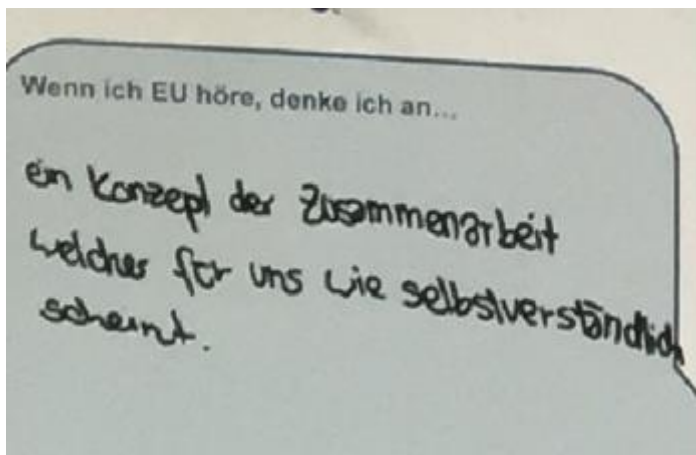 Wenn ich EU höre, denke ich an...
ein Konzept der Zusammenarbeit
welches für uns wie selbstverständlich
scheint.